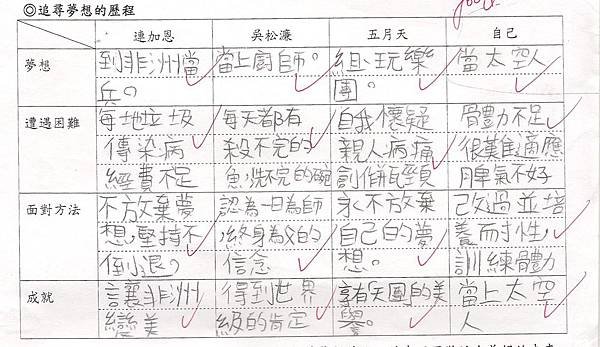 ◎追尋夢想的歷程
連加恩 吳松濂 五月天 自己
夢想
到非洲當
兵。
當上廚師。
組、玩樂
團。
當太空人
遭遇困難
每地垃圾
傳染病
經費不足
每天都有
殺不完的
魚,洗不完的碗
自我懷疑
親人病痛
創作瓶頸
體力不足
很難適應
脾氣不好
面對方法
不放棄夢
想,堅持不
倒退。
認為一日為師
,終身為父的
信念
永不放棄
自己的夢
想。
改過並培
養耐性,
訓練體力
成就
讓非洲
變美
得到世界
級的肯定
享有天團的美
譽。
當上太空
人